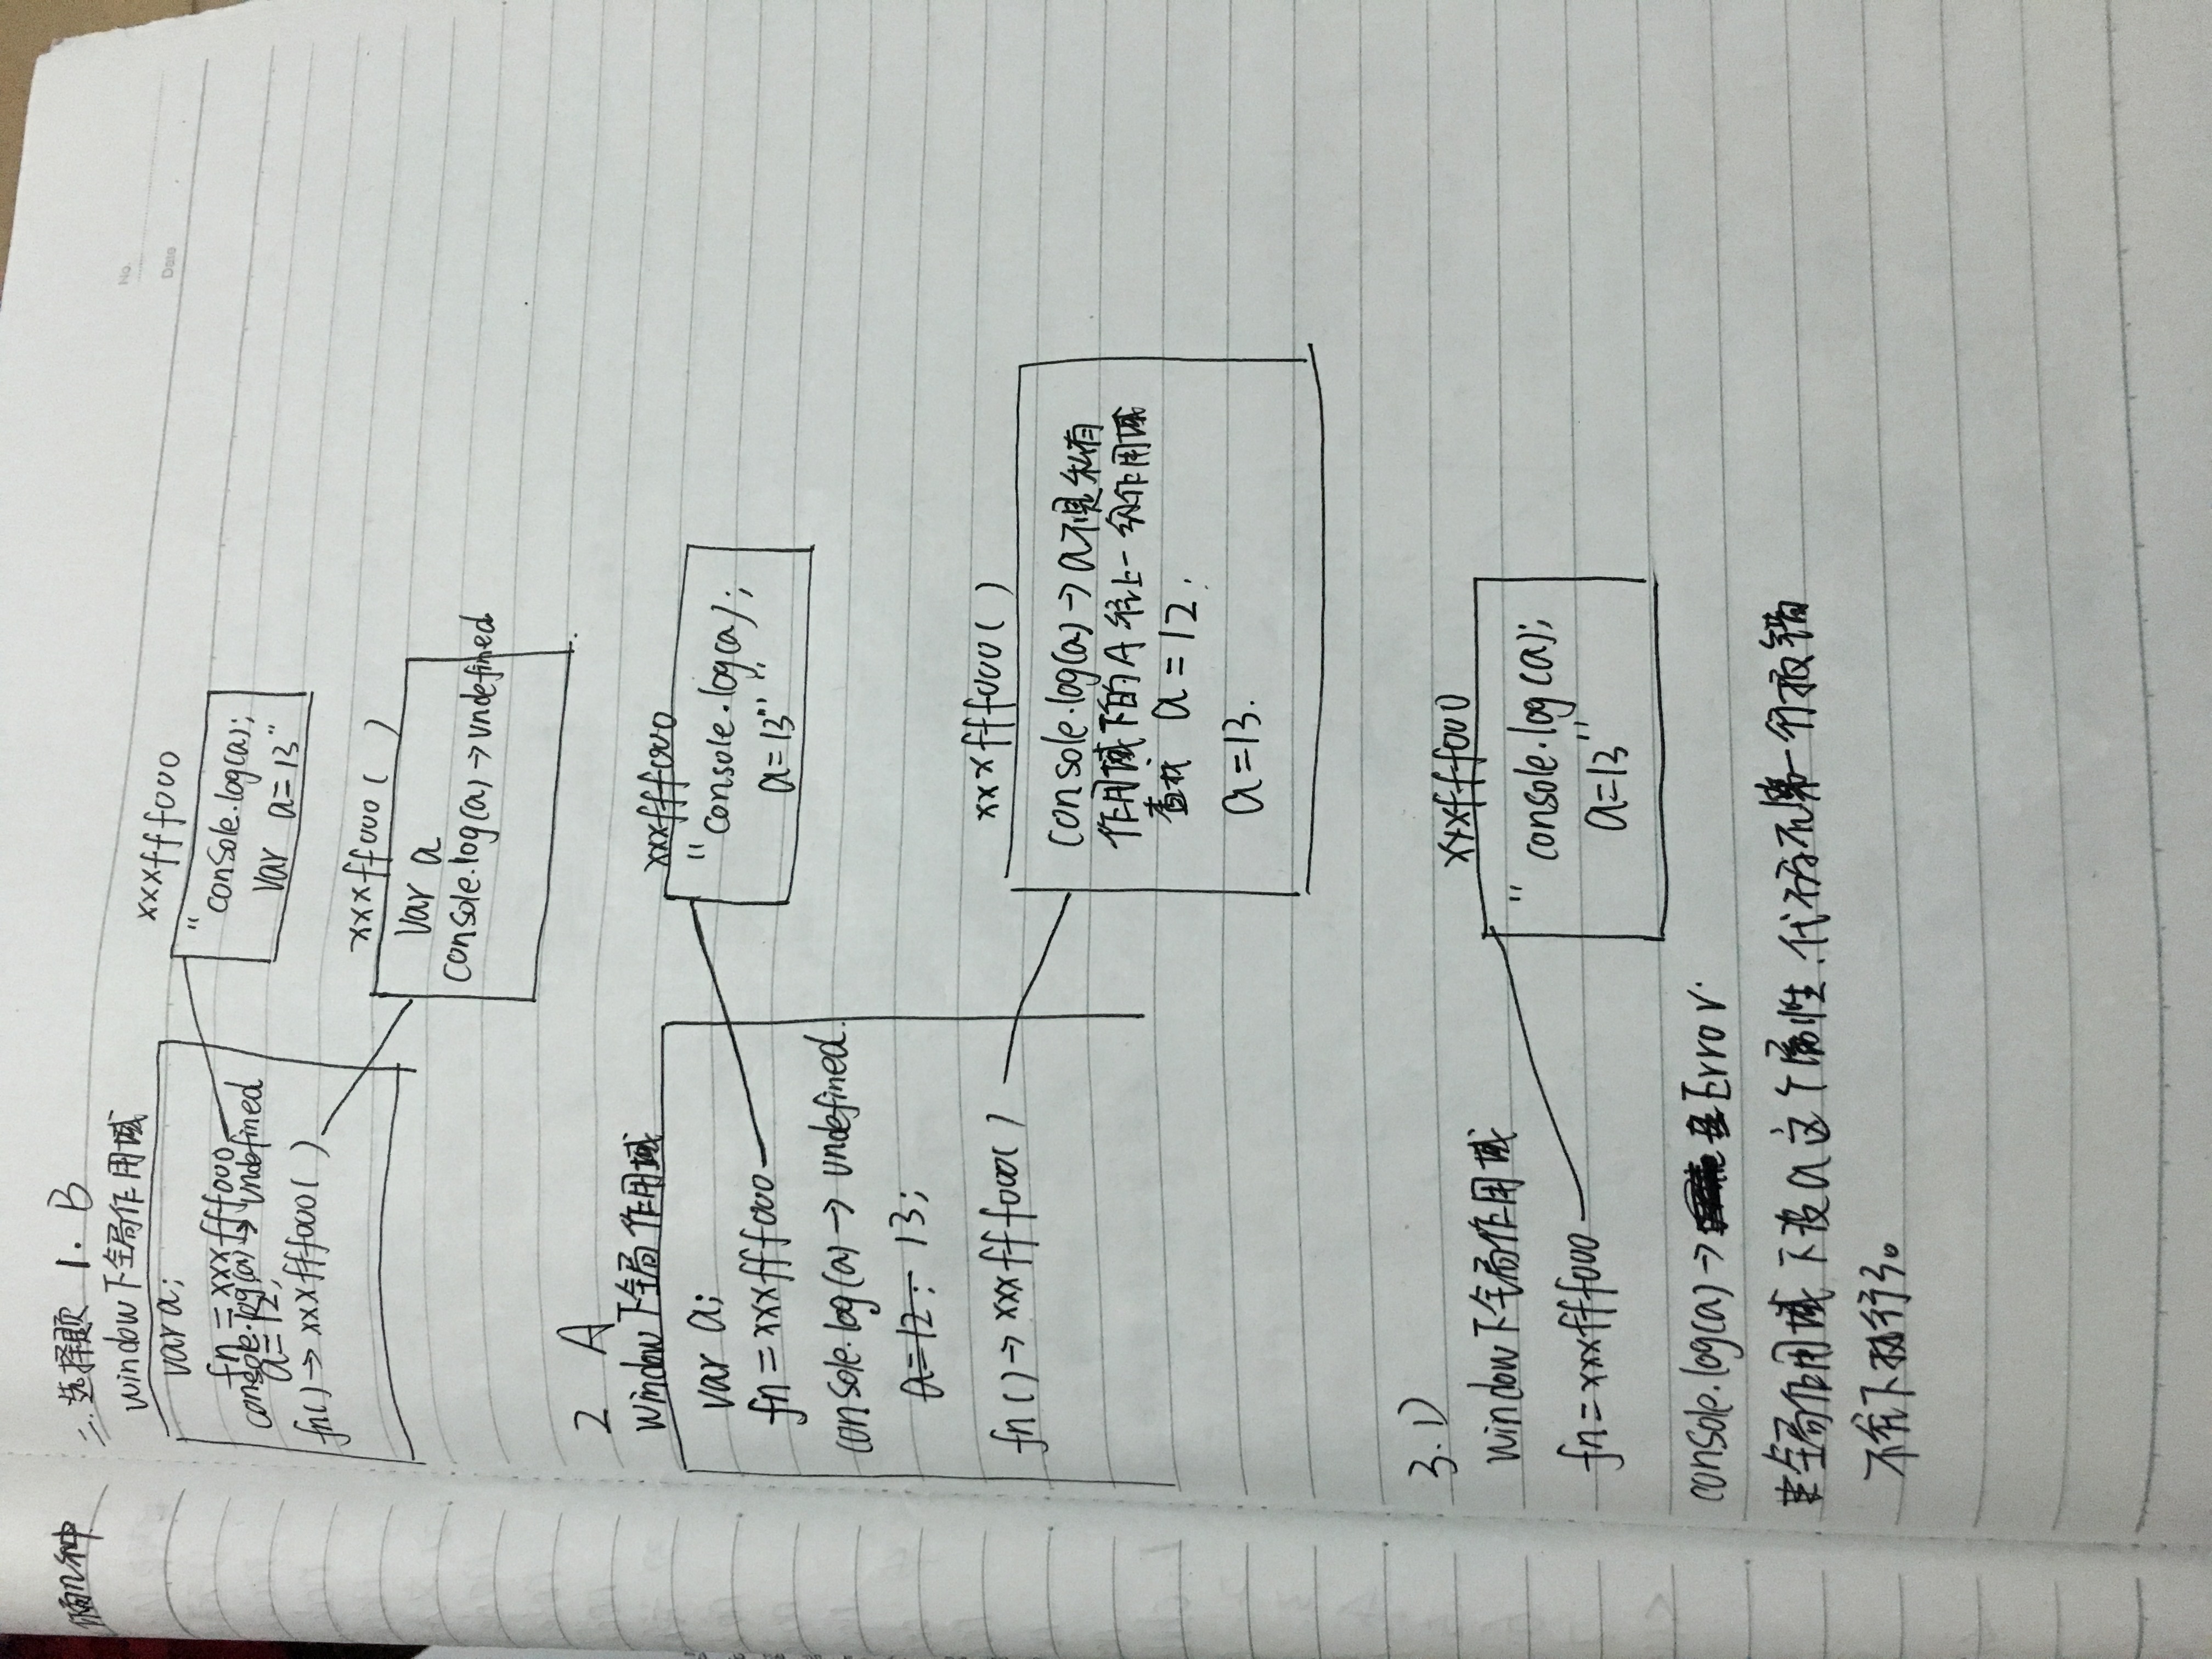 有几种
二.选择题 1. B
window下全局作用域
var a;
fn = xxxfff000
console.log(a) → undefined
a = 12;
fn() → xxxfff000( )
xxxfff000
"console.log(a);
var a = 13"
xxxff000( )
var a
console.log(a) → undefined
2 A
window下全局作用域
var a;
fn = xxxfff000
console.log(a) → undefined.
a=12; 13;
fn() → xxxfff000()
xxxfff000
"console.log(a);
a=13" "
xxxfff000( )
console.log(a) → a不是私有
作用域下的A 往上一级作用域
查找 a = 12.
a = 13.
3. D
window下全局作用域
fn = xxxfff000
xxxfff000
" console.log(a);
a=13"
console.log(a) → Error.
全局作用域下没a这个属性.代码在第一行报错
不往下执行了。